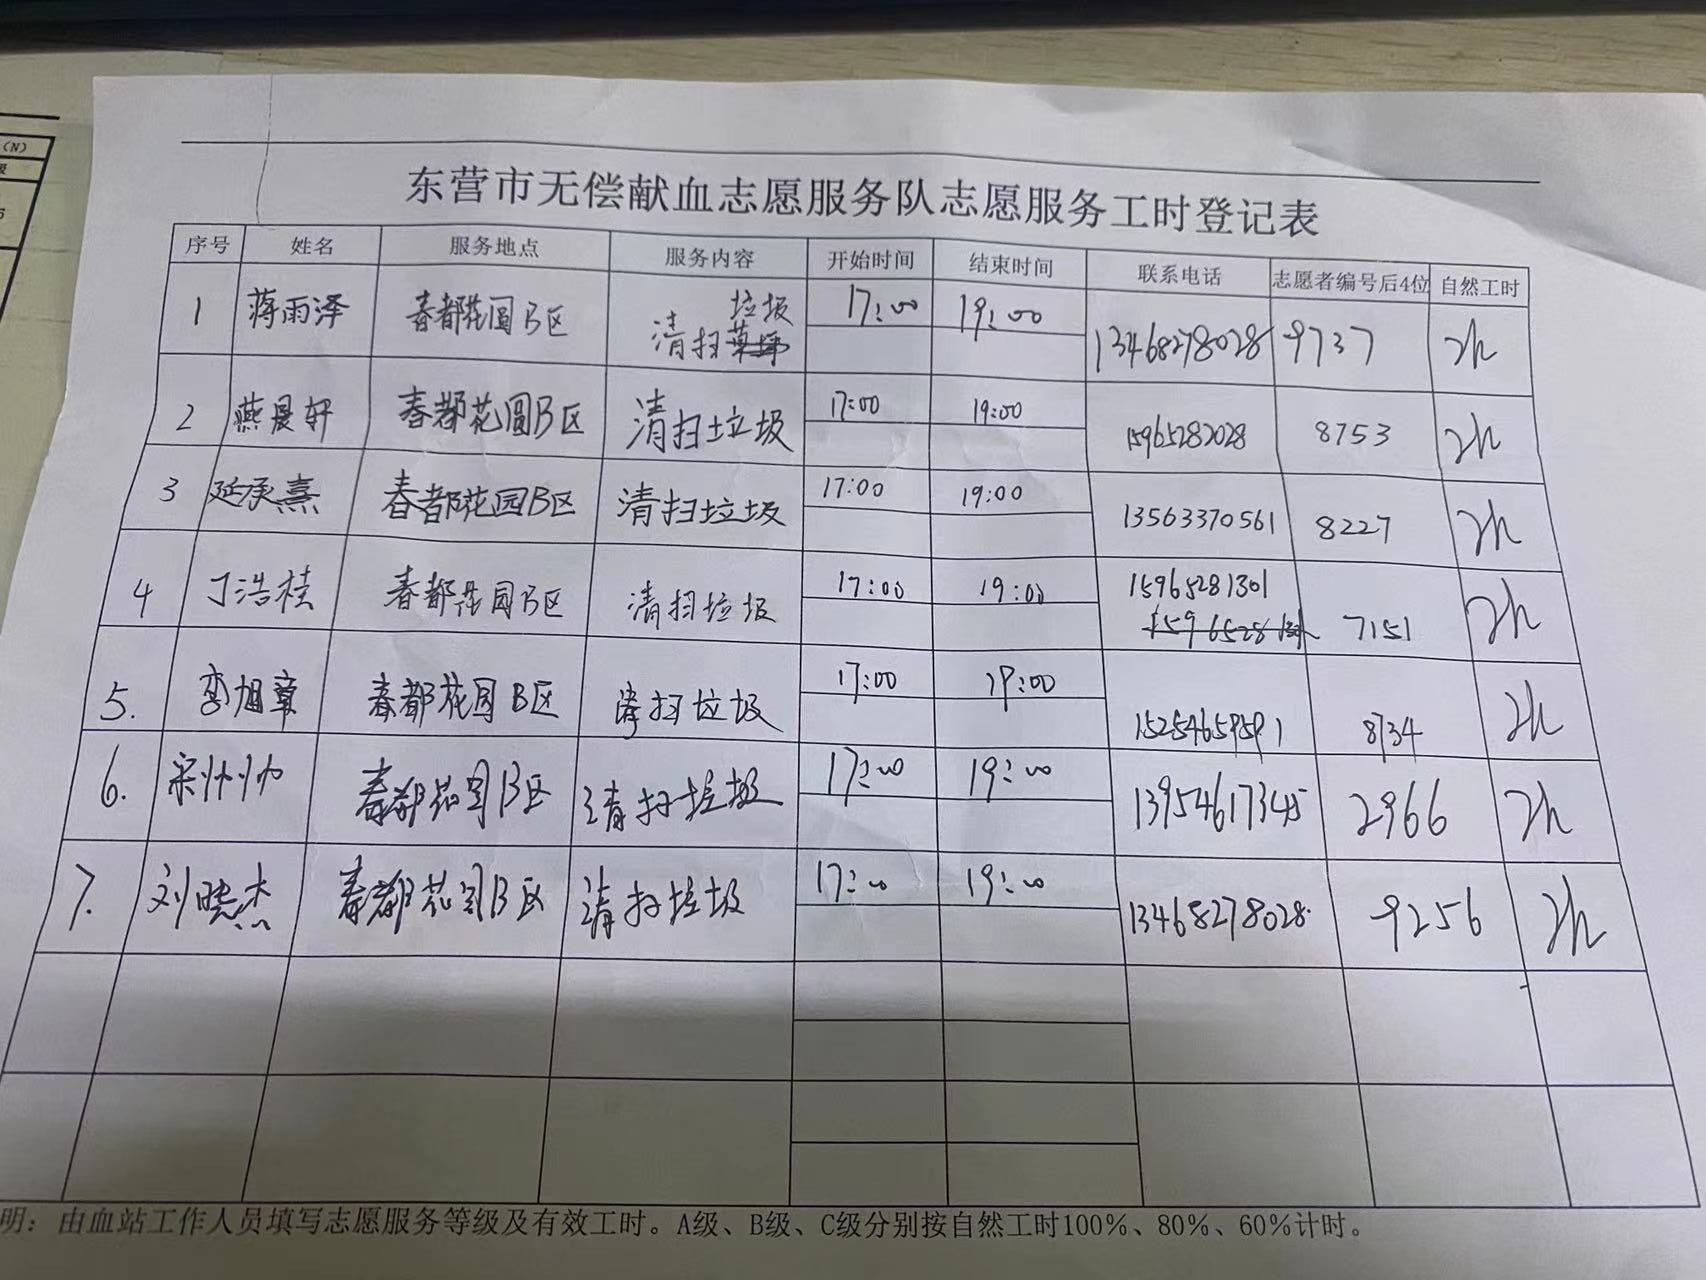 (N)
级
东营市无偿献血志愿服务队志愿服务工时登记表
序号 姓名 服务地点 服务内容 开始时间 结束时间 联系电话 志愿者编号后4位 自然工时
1 蒋雨泽 春都花园B区 清扫垃圾 17:00 19:00 13468278028 9737 2h
2 燕晨轩 春都花园B区 清扫垃圾 17:00 19:00 15965282028 8753 2h
3 延承熹 春都花园B区 清扫垃圾 17:00 19:00 13563370561 8227 2h
4 丁浩桂 春都花园B区 清扫垃圾 17:00 19:00 15965281301 7151 2h
5. 旭章 春都花园B区 清扫垃圾 17:00 19:00 15254659591 8734 2h
6. 宋帅帅 春都花园B区 清扫垃圾 17:00 19:00 13954617345 2966 2h
7. 刘晓杰 春都花园B区 清扫垃圾 17:00 19:00 13468278028 9256 2h
明：由血站工作人员填写志愿服务等级及有效工时。A级、B级、C级分别按自然工时100%、80%、60%计时。